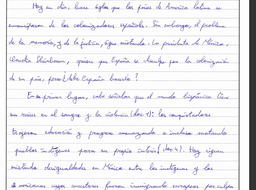 Hoy en día, hace siglos que los países de América latina se
emanciparon de los colonizadores españoles. Sin embargo, el problema
de la memoria, y de la justicia, sigue existiendo. La presidenta de México,
Claudia Sheinbaum, quiere que España se disculpe por la colonización
de su país; pero ¿debe España hacerlo?
En primer lugar, cabe señalar que el mundo hispánico tiene
sus raíces en el sangre y la violencia (doc 1): los conquistadores
trajeron educación y progreso amenazando e incluso matando
pueblos indígenas para su propia codicia (doc 4). Hoy siguen
existiendo desigualdades en México entre los indígenas y los
mexicanos cuyos ancestros fueron inmigrantes europeos por culpa